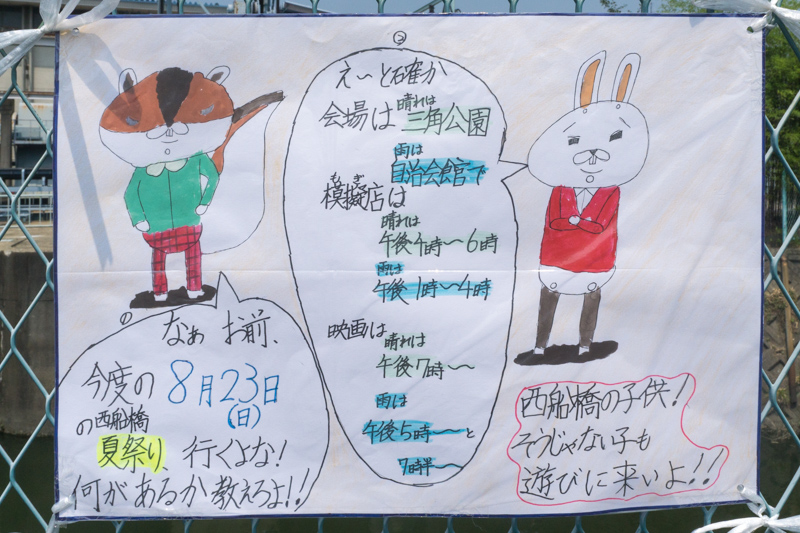 なぁ お前、
今度の 8月23日
(日)
の西船橋
夏祭り、行くよな!
何があるか教えろよ!!
え〜と確か
晴れは
会場は三角公園
雨は
自治会館で
もぎ
模擬店は
晴れは
午後4時〜6時
雨は
午後1時〜4時
映画は
晴れは
午後7時〜
雨は
午後5時〜と
7時半〜
西船橋の子供!
そうじゃない子も
遊びに来いよ!!